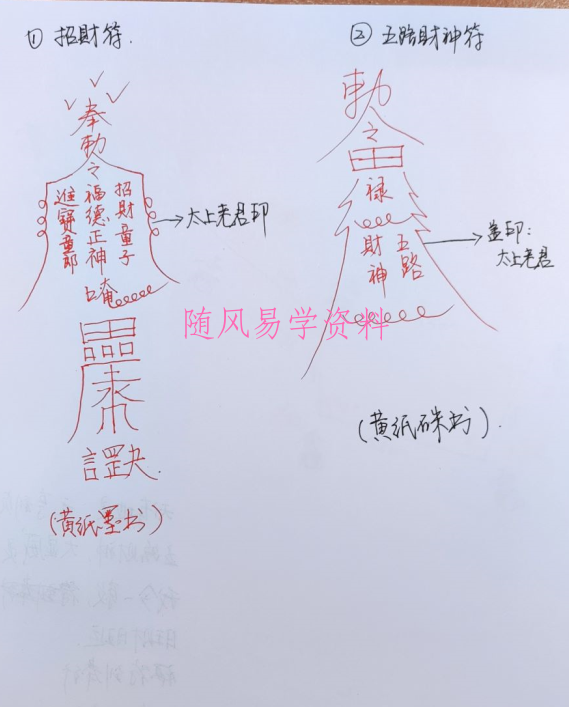 ① 招財符.
② 五路財神符
奉
勅
之
招財童子
福德正神
進寶童郎
太上老君印
勅
之
禄
五路
財神
盖印:
太上老君
随风易学资料
(黄纸硃书).
(黄纸墨书)